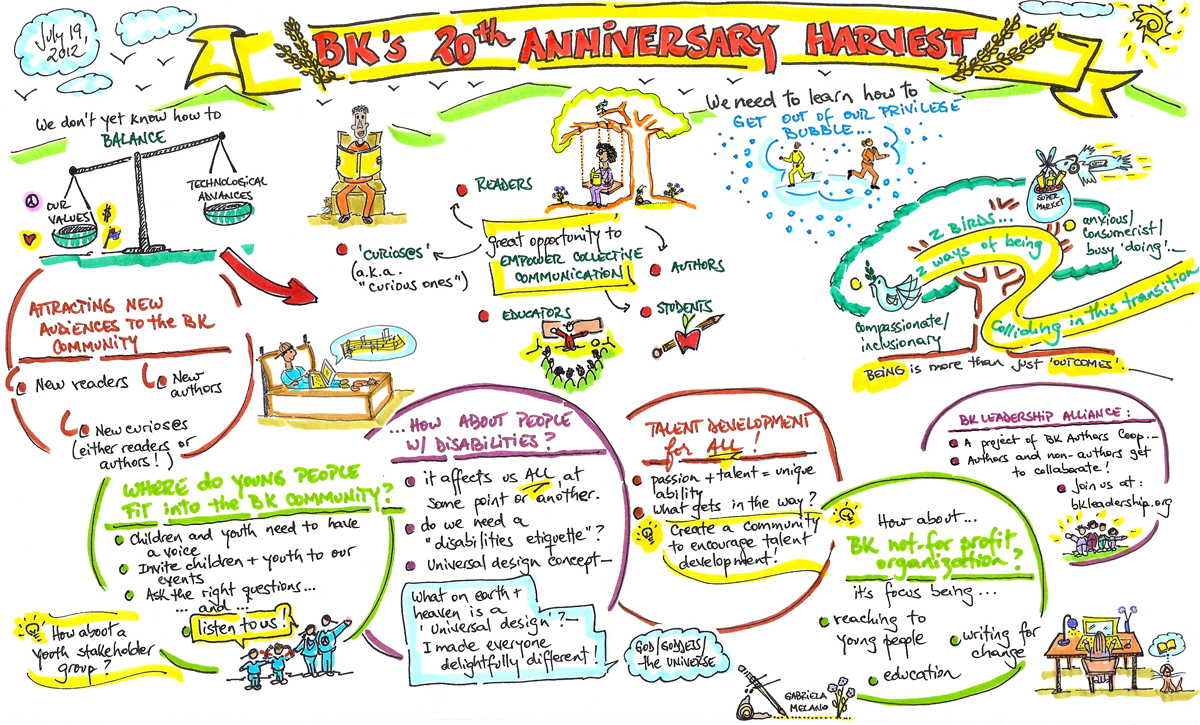 July 19,
2012
BK's 20th ANNIVERSARY HARVEST
We don't yet know how to
BALANCE
OUR
VALUES
$
TECHNOLOGICAL
ADVANCES
READERS
'CURIOS@S'
(a.k.a.
"curious ones")
great opportunity to
EMPOWER COLLECTIVE
COMMUNICATION
AUTHORS
EDUCATORS
STUDENTS
We need to learn how to
GET OUT OF OUR PRIVILEGE
BUBBLE...
2 BIRDS...
2 ways of being
Colliding in this transition
SUPER
MARKET
anxious/
consumerist/
busy 'doing'...
compassionate/
inclusionary
BEING is more than just 'OUTCOMES'.
ATTRACTING NEW
AUDIENCES TO the BK
COMMUNITY
New readers
New
authors
New curios@s
(either readers or
authors!)
WHERE do YOUNG PEOPLE
FIT into the BK COMMUNITY?
Children and youth need to have
a voice
Invite children + youth to our
events
Ask the right questions...
... and ...
listen to us!
How about a
youth stakeholder
group?
...HOW ABOUT PEOPLE
W/ DISABILITIES?
it affects us ALL at
some point or another.
do we need a
"disabilities etiquette"?
Universal design concept—
What on earth +
heaven is a
'Universal design'?—
I made everyone
delightfully different!
GOD/GODDESS/
the UNIVERSE
TALENT DEVELOPMENT
for ALL!
passion + talent = unique
ability
What gets in the way?
Create a community
to encourage talent
development!
BK LEADERSHIP ALLIANCE:
A project of BK Authors Coop...
Authors and non-authors get
to collaborate!
Join us at:
bkleadership.org
How about...
BK not-for profit
organization?
it's focus being...
reaching to
young people
writing for
change
education
GABRIELA
MELANO